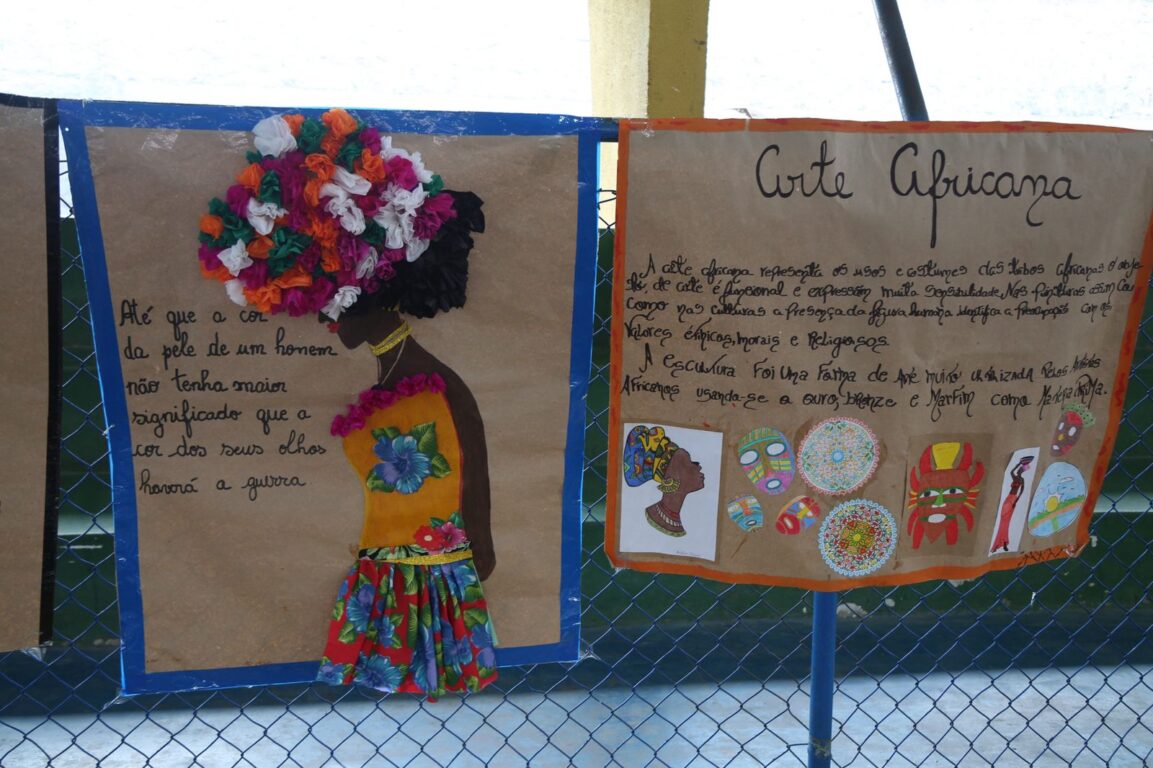 Até que a cor
da pele de um homem
não tenha maior
significado que a
cor dos seus olhos
haverá a guerra
Arte Africana
A arte africana representa os usos e costumes das tribos africanas o obje
to, de arte é funcional e expressam muita sensibilidade, Nas pinturas assim
Como nas culturas a presença da figura humana identifica a preocupação com os
Valores étnicos, morais e Religiosos.
A Escultura Foi Uma Forma de Arte muito utilizada Pelos Artistas
Africanos usando-se o ouro, bronze e Marfim como Matéria PRIMA.